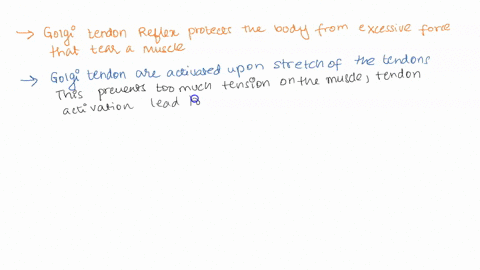 → Golgi tendon Reflex protects the body from excessive force
that tear a muscle
→ Golgi tendon are activated upon stretch of the tendons
This prevents too much tension on the muscle, tendon
activation lead